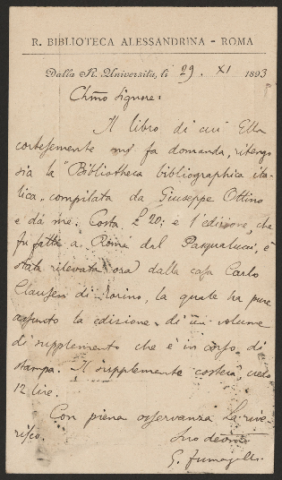 R. BIBLIOTECA ALESSANDRINA - ROMA
Dalla R. Università, li 29. XI 1893
Chmo Signore:
Il libro di cui Ella
cortesemente mi fa domanda, ritengo
sia la Bibliotheca bibliographica ita-
lica, compilata da Giuseppe Ottino
e da me. Costa £ 20: e l'edizione, che
fu fatta a Roma dal Pasqualucci, è
stata rilevata ora dalla casa Carlo
Clausen di Torino, la quale ha pure
assunto la edizione di un volume
di supplemento che è in corso di
stampa. Il supplemento costerà
12 lire.
Con piena osservanza La rive-
risco.
Suo devmo
G. Fumagalli